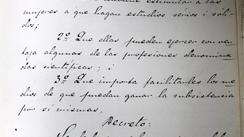 mujeres a que hagan estudios serios i sóli-
dos;
2º Que ellas pueden ejercer con ven-
taja algunas de las profesiones denomina-
das científicas; i
3º Que importa facilitarles los me-
dios de que puedan ganar la subsistencia
por sí mismas,
Decreto: